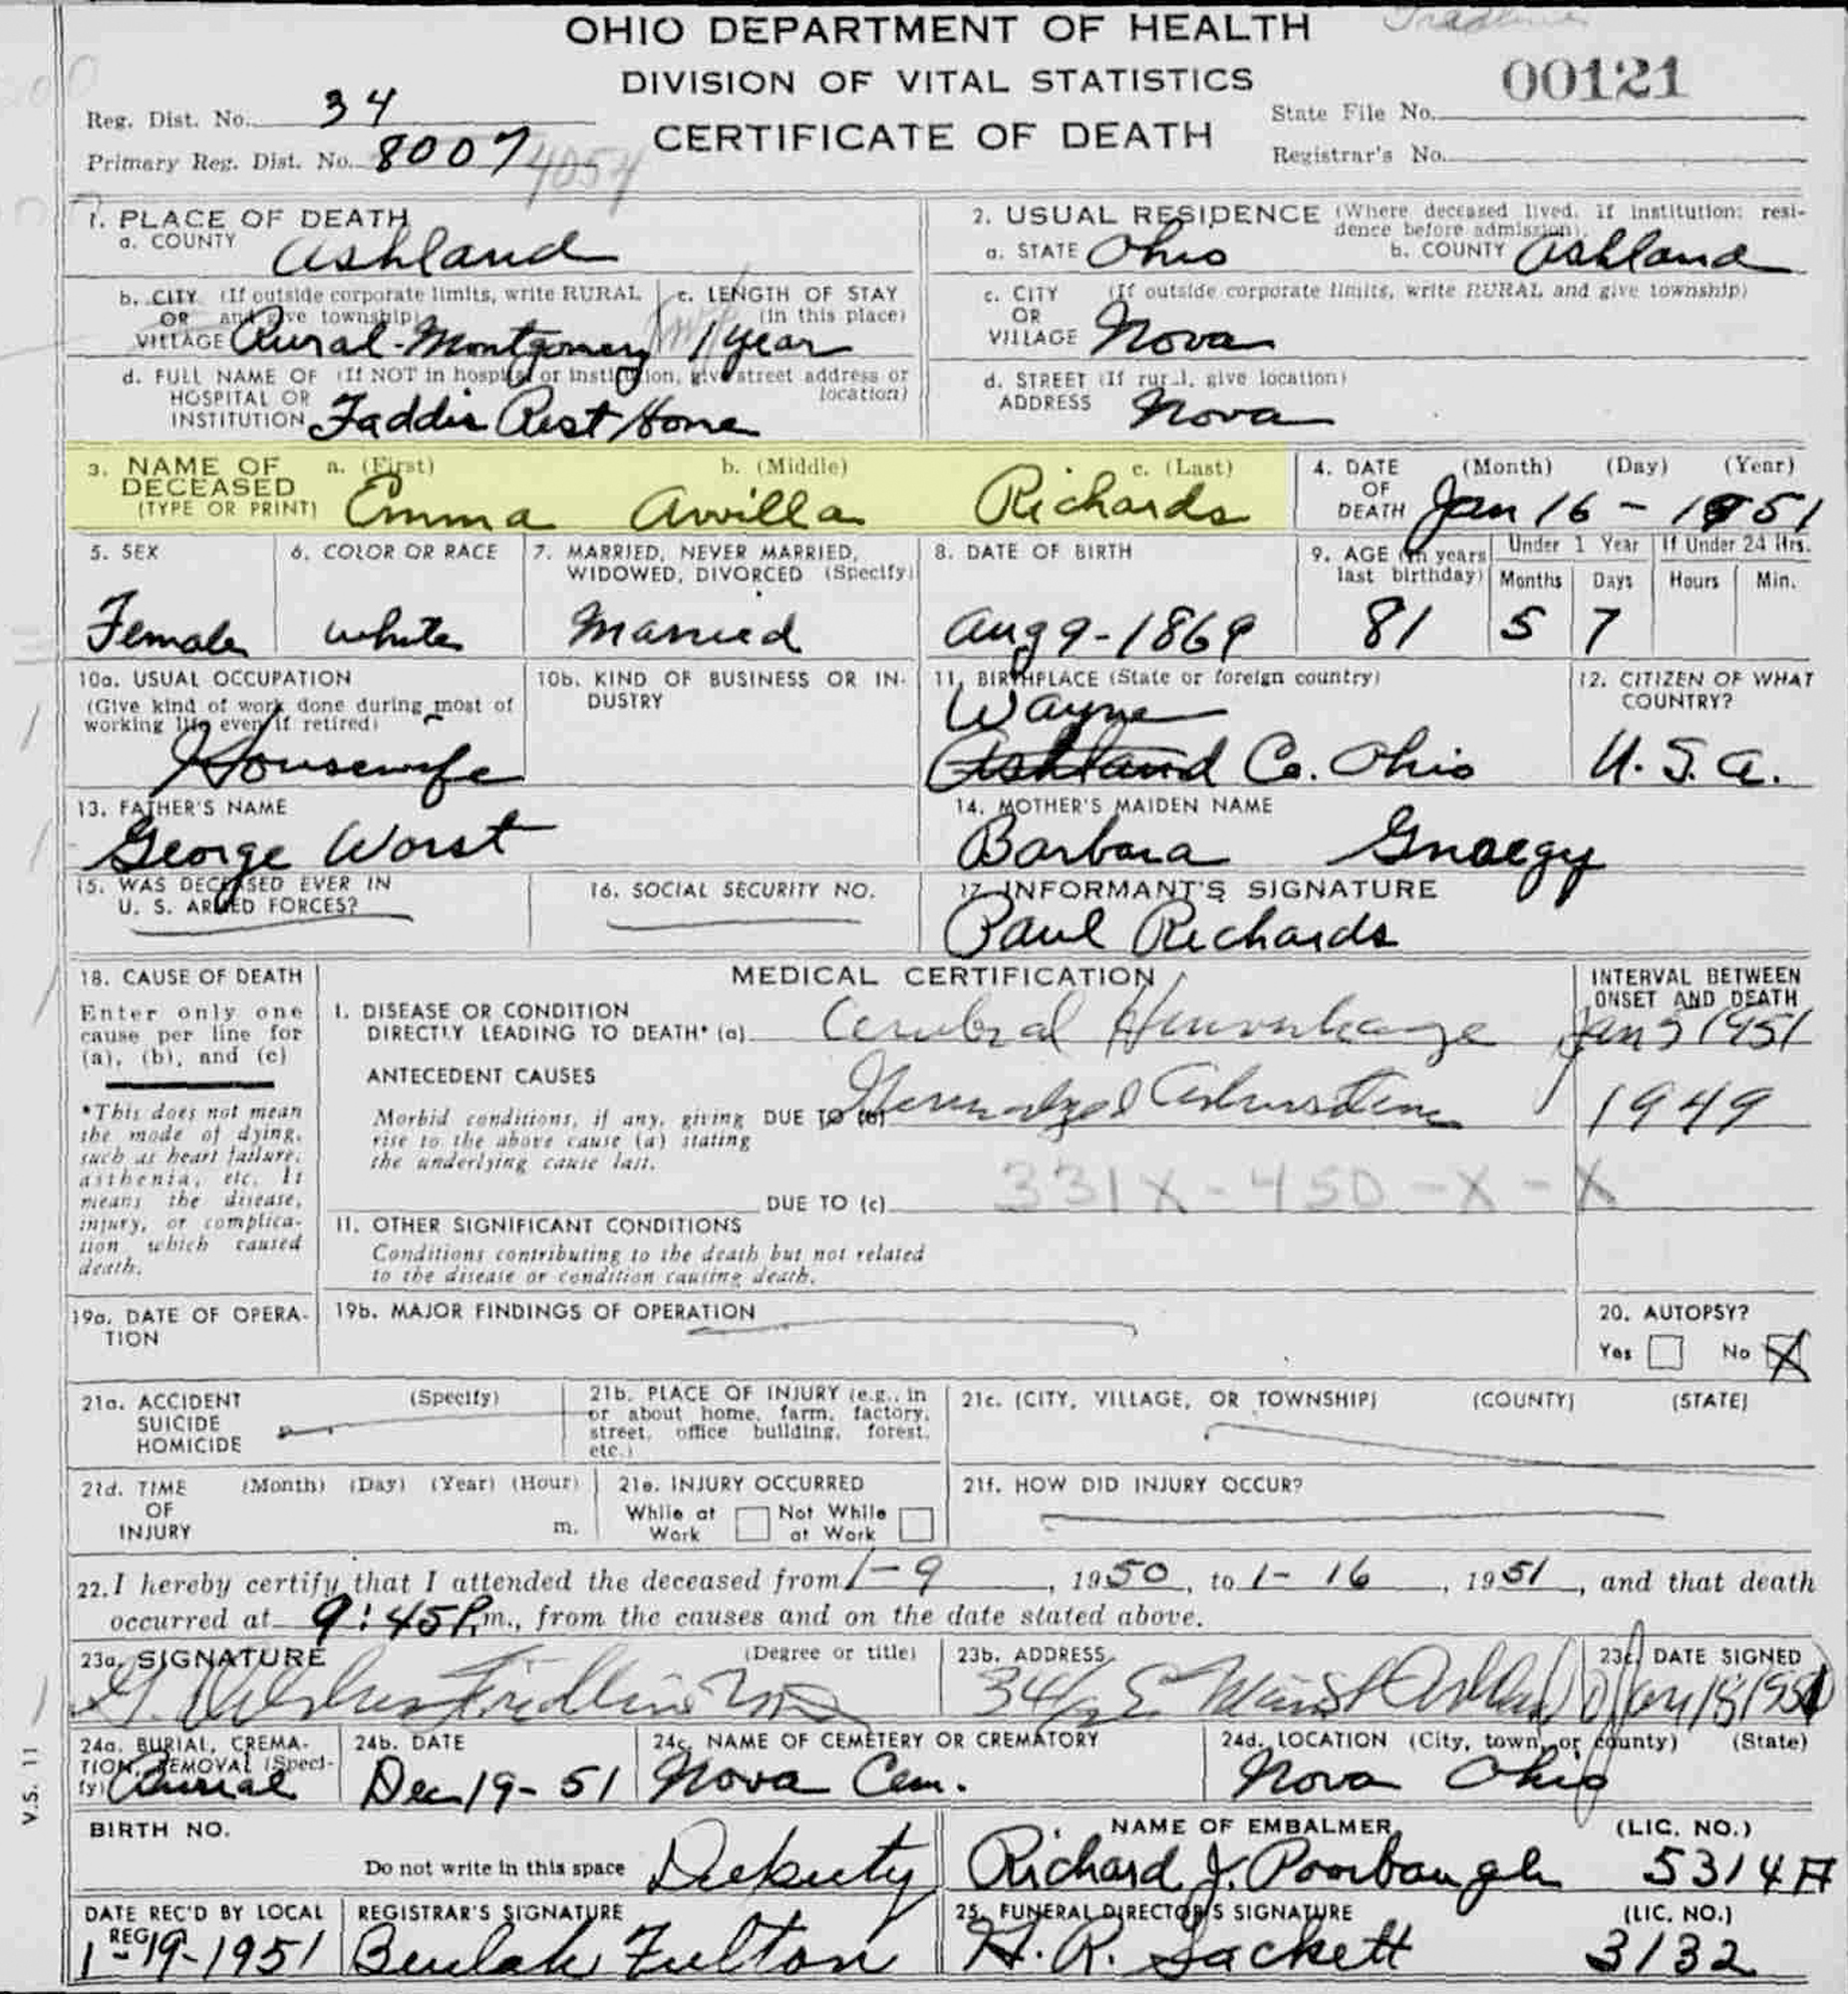 OHIO DEPARTMENT OF HEALTH
DIVISION OF VITAL STATISTICS
CERTIFICATE OF DEATH
00121
Reg. Dist. No. 34
Primary Reg. Dist. No. 8007 4054
State File No.
Registrar's No.
1. PLACE OF DEATH
a. COUNTY Ashland
2. USUAL RESIDENCE (Where deceased lived. If institution: resi-
dence before admission).
a. STATE Ohio b. COUNTY Ashland
b. CITY (If outside corporate limits, write RURAL
OR and give township)
VILLAGE Rural-Montgomery
c. LENGTH OF STAY
(in this place)
1 year
c. CITY (If outside corporate limits, write RURAL and give township)
OR
VILLAGE Nova
d. FULL NAME OF (If NOT in hospital or institution, give street address or
HOSPITAL OR location)
INSTITUTION Faddis Rest Home
d. STREET (If rural, give location)
ADDRESS Nova
3. NAME OF a. (First) b. (Middle) c. (Last)
DECEASED
(TYPE OR PRINT) Emma Avvilla Richards
4. DATE (Month) (Day) (Year)
OF
DEATH Jan 16 - 1951
5. SEX
Female
6. COLOR OR RACE
white
7. MARRIED, NEVER MARRIED,
WIDOWED, DIVORCED (Specify)
Married
8. DATE OF BIRTH
Aug 9-1869
9. AGE (In years
last birthday)
81
Under 1 Year
Months Days
5 7
If Under 24 Hrs.
Hours Min.
10a. USUAL OCCUPATION
(Give kind of work done during most of
working life even if retired)
Housewife
10b. KIND OF BUSINESS OR IN-
DUSTRY
11. BIRTHPLACE (State or foreign country)
Wayne
Ashland Co. Ohio
12. CITIZEN OF WHAT
COUNTRY?
U. S. A.
13. FATHER'S NAME
George Worst
14. MOTHER'S MAIDEN NAME
Barbara Gnaegy
15. WAS DECEASED EVER IN
U. S. ARMED FORCES?
16. SOCIAL SECURITY NO.
17. INFORMANT'S SIGNATURE
Paul Richards
18. CAUSE OF DEATH
Enter only one
cause per line for
(a), (b), and (c)
*This does not mean
the mode of dying,
such as heart failure,
asthenia, etc. It
means the disease,
injury, or complica-
tion which caused
death.
MEDICAL CERTIFICATION
INTERVAL BETWEEN
ONSET AND DEATH
I. DISEASE OR CONDITION
DIRECTLY LEADING TO DEATH* (a) Cerebral Hemorrhage Jan 1951
ANTECEDENT CAUSES
Morbid conditions, if any, giving DUE TO (b) Generalized 1949
rise to the above cause (a) stating
the underlying cause last.
331X-450-X-X
DUE TO (c)
II. OTHER SIGNIFICANT CONDITIONS
Conditions contributing to the death but not related
to the disease or condition causing death.
19a. DATE OF OPERA-
TION
19b. MAJOR FINDINGS OF OPERATION
20. AUTOPSY?
Yes No X
21a. ACCIDENT (Specify)
SUICIDE
HOMICIDE
21b. PLACE OF INJURY (e.g., in
or about home, farm, factory,
street, office building, forest,
etc.)
21c. (CITY, VILLAGE, OR TOWNSHIP) (COUNTY) (STATE)
21d. TIME (Month) (Day) (Year) (Hour)
OF
INJURY m.
21e. INJURY OCCURRED
While at Work Not While at Work
21f. HOW DID INJURY OCCUR?
22. I hereby certify that I attended the deceased from 1-9, 1950, to 1-16, 1951, and that death
occurred at 9:45 P.m., from the causes and on the date stated above.
23a. SIGNATURE (Degree or title)
23b. ADDRESS
E Main St Ashland O
23c. DATE SIGNED
Jan 18 1951
24a. BURIAL, CREMA-
TION, REMOVAL (Speci-
fy) Burial
24b. DATE
Dec 19-51
24c. NAME OF CEMETERY OR CREMATORY
Nova Cem.
24d. LOCATION (City, town, or county) (State)
Nova Ohio
BIRTH NO.
Do not write in this space Deputy
NAME OF EMBALMER (LIC. NO.)
Richard J. Poorbaugh 5314A
DATE REC'D BY LOCAL
REG.
1-19-1951
REGISTRAR'S SIGNATURE
Beulah Fulton
25. FUNERAL DIRECTOR'S SIGNATURE (LIC. NO.)
H. R. Sackett 3132
V.S. 11